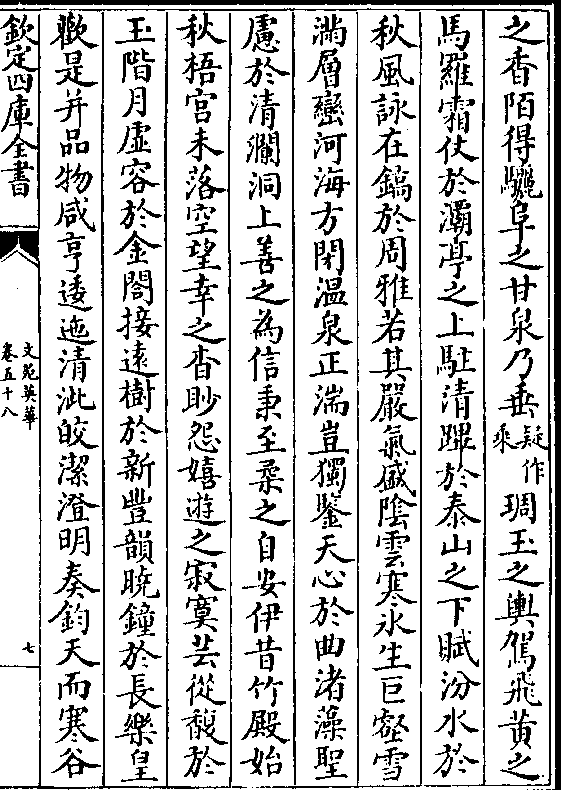 之香陌得驪阜之甘泉乃垂疑作乘琱玉之輿駕飛黄之
馬羅霜仗於灞亭之上駐清蹕於泰山之下賦汾水於
秋風詠在鎬於周雅若其嚴氣盛陰雲寒氷生巨壑雪
滿層巒河海方閉温泉正湍豈獨鑒天心於曲渚藻聖
慮於清瀾洞上善之為信秉至柔之自安伊昔竹殿始
秋梧宫未落空望幸之杳眇怨嬉遊之寂寞芸從馥於
玉階月虚容於金閤接遠樹於新豐韻曉鐘於長樂皇
歡是并品物咸亨逶迤清泚皎潔澄明奏鈞天而寒谷
欽定四庫全書
文苑英華
卷五十八
七